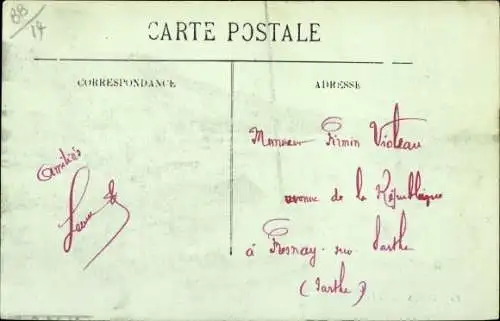 88/14
CARTE POSTALE
CORRESPONDANCE
ADRESSE
Amitiés
Monsieur Firmin Violeau
avenue de la République
à Fresnay sur Sarthe
(Sarthe)